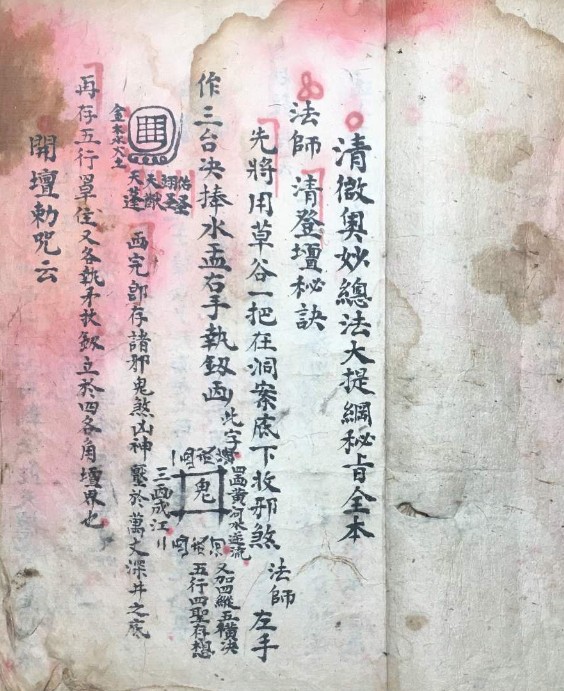 清微奥妙總法大提綱秘旨全本
法師 清登壇秘訣
先將用草谷一把在洞案底下收邪煞 法師 左手
作三台决捧水盂右手執釼画 此字
鬼
黄河水逆流
三画成江
又加四縱五橫决
五行四聖存想
佑圣
翊圣
天猷
天蓬
金木水火土
画完即存諸邪鬼煞凶神壓於萬丈深井之底
再存五行罩住又各執矛扙釼立於四各角壇界也
開壇勅咒云